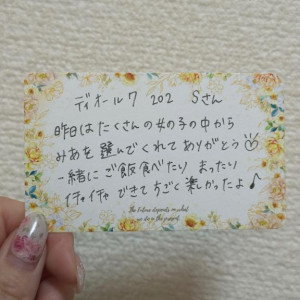 ディオール7 202 Sさん
昨日はたくさんの女の子の中から
みあを選んでくれてありがとう♡
一緒にご飯食べたり まったり
イチャイチャ できてすごく楽しかったよ♪
The future depends on what
we do in the present.